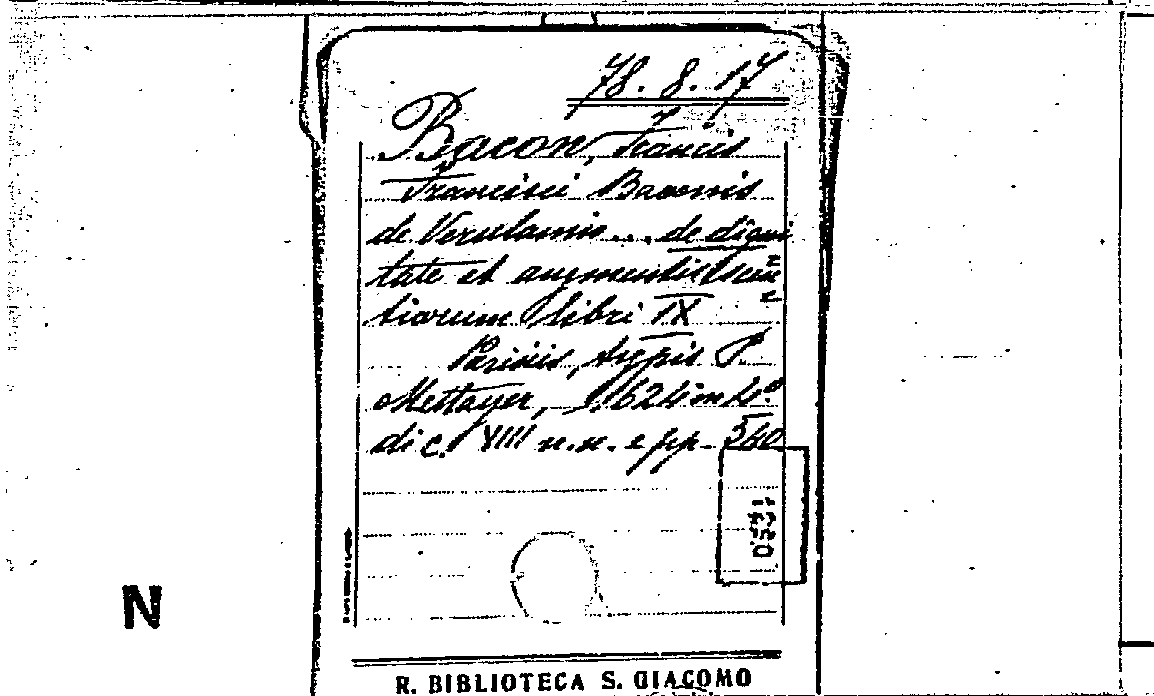 78. 8. 17
Bacon, Francis
Francisci Baconis
de Verulamio... de digni
tate et augmentis scien
tiarum libri IX
Parisiis, typis P.
Mettayer, 1624 in 4.º
di c. VIII n.n. e pp. 540
N
R. BIBLIOTECA S. GIACOMO